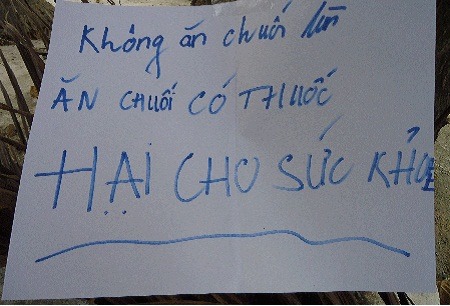 Không ăn chuối lùn
ĂN CHUỐI CÓ THUỐC
HẠI CHO SỨC KHỎE